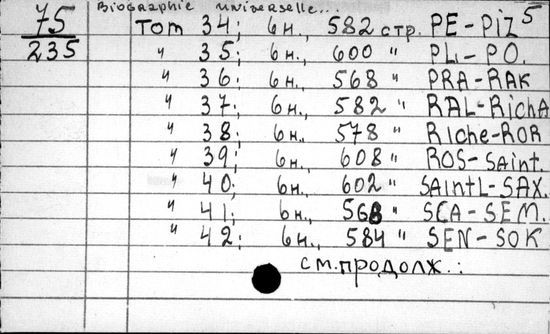 75 Biographie universelle... 5
235 Том 34; 6н., 582 стр. PE-PiZ
" 35; 6н., 600 " PLi-PO.
" 36; 6н., 568 " PRA-RAK
" 37; 6н., 582 " RAL-RichA
" 38; 6н., 578 " Riche-ROR
" 39; 6н., 608 " ROS-SAint.
" 40; 6н., 602 " SAintL-SAX.
" 41; 6н., 568 " SCA-SEM.
" 42; 6н., 584 " SEN-SOK
см. продолж.: